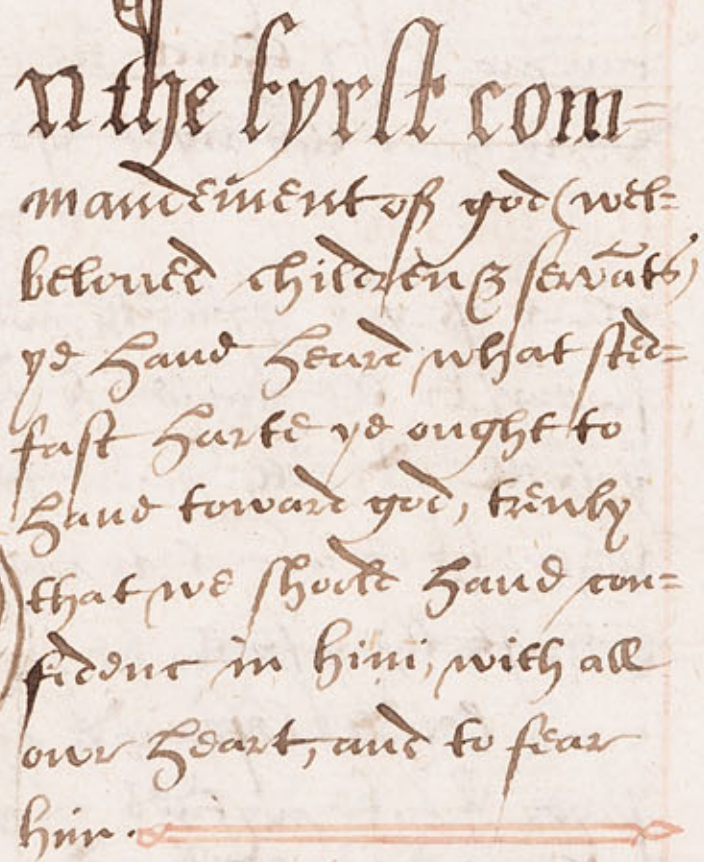 n the fyrst com=
maundement of god (wel=
beloued children & servāts)
ye haue heard what sted=
fast harte ye ought to
haue toward god, trewly
that we should haue con=
fidenc in him, with all
owr heart, and to fear
him.